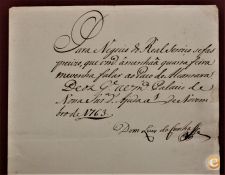 Para Negocio do Real Serviço se faz
precizo, que vm.ce amenhaã quarta feira
me venha falar ao Paço de Alcantara.
Deos G.e a vm.ce Palacio de
Nossa Snr.a d'Ajuda a 1 de Novem
bro de 1763.
Dom Luis da Cunha